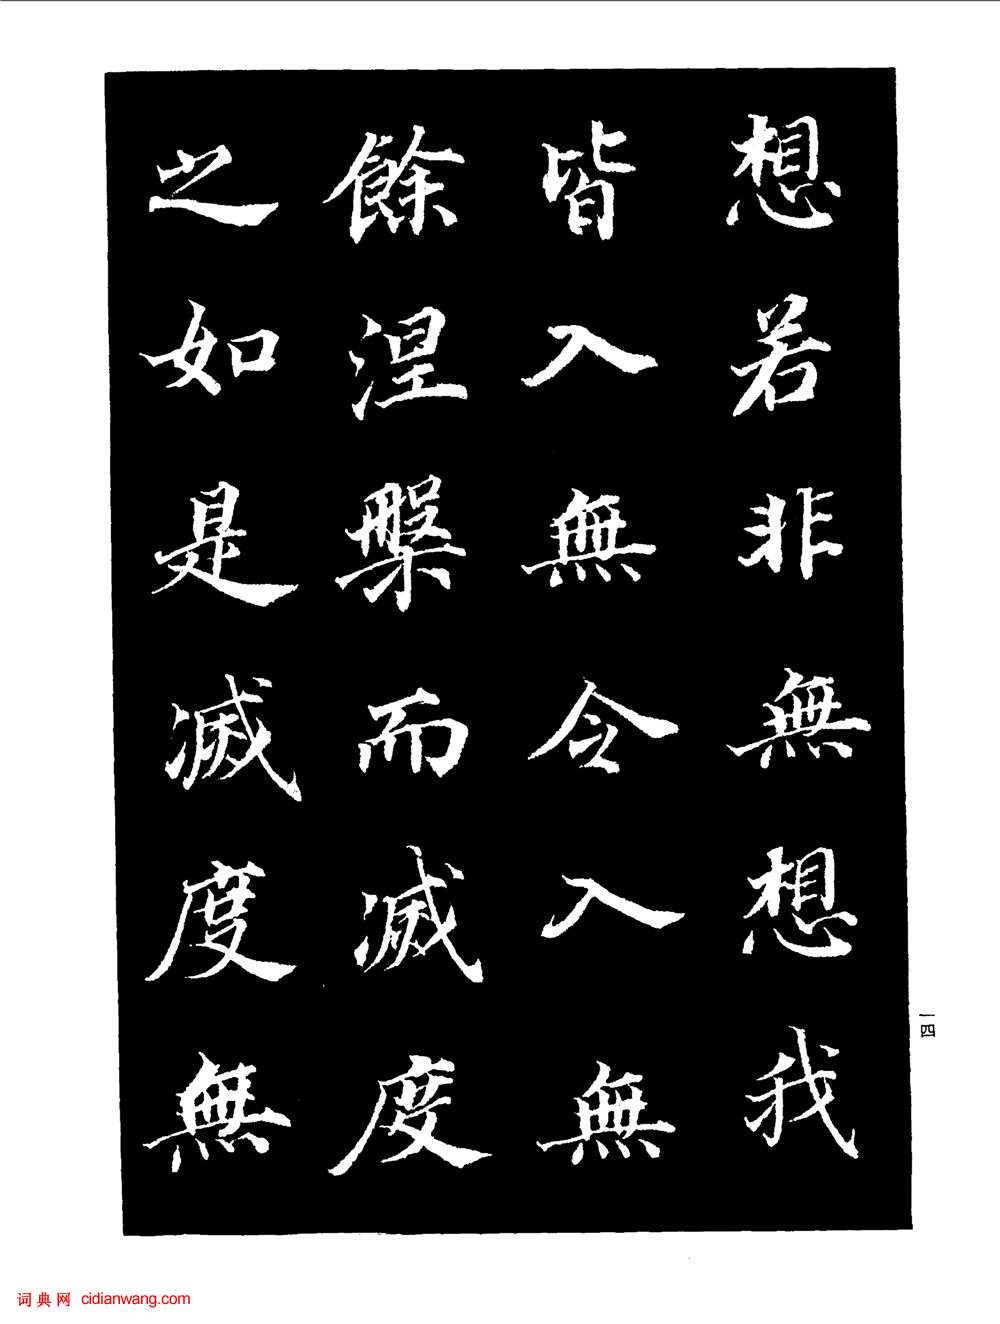 想若非無想我
皆入無令入無
餘涅槃而滅度
之如是滅度無
一四
词典网 cidianwang.com